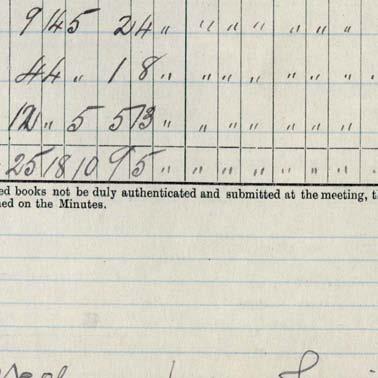 9 14 5 24 " " " " " " " "
44 " 1 8 " " " " " " " "
12 " 5 573 " " " " " " " "
25 18 10 95 " " " " " " " "
ed books not be duly authenticated and submitted at the meeting, t
ned on the Minutes.